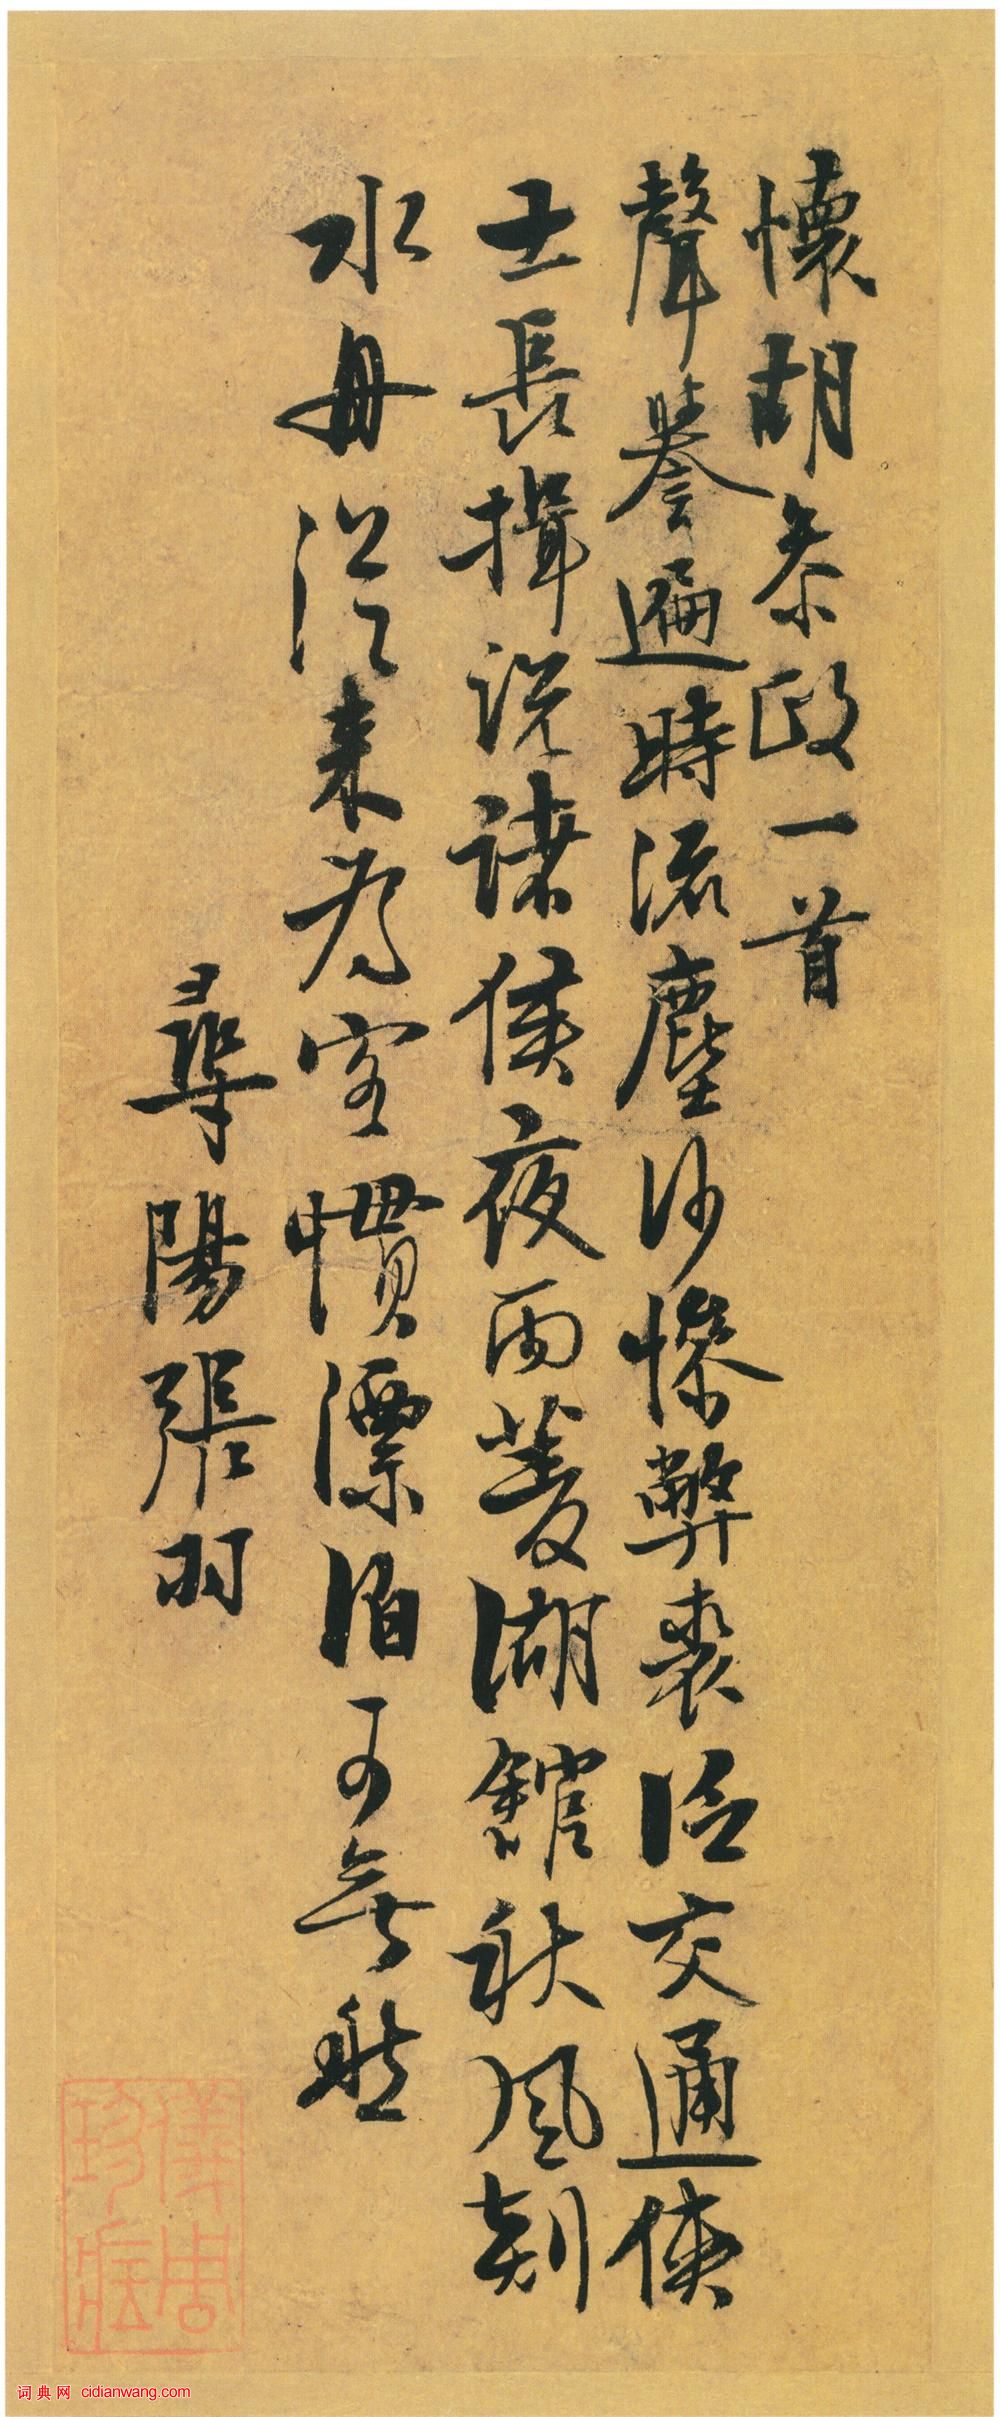 懷胡參政一首
聲譽遍時流塵沙慘弊裘論交通俠
士長揖說諸侯夜雨菱湖館秋風剡
水舟從來為客慣漂泊可無愁
尋陽張羽
儀周
珍藏
词典网 cidianwang.com